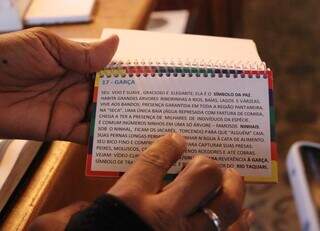 57 - GARÇA
SEU VOO É SUAVE, GRACIOSO E ELEGANTE; ELA É O SÍMBOLO DA PAZ
HABITA GRANDES ÁRVORES RIBEIRINHAS A RIOS, BAÍAS, LAGOS E VARZEAS,
VIVE AOS BANDOS; PRESENÇA GARANTIDA EM TODA A REGIÃO PANTANEIRA
NA "SECA", UMA ÚNICA BAIA (ÁGUA REPRESADA COM FARTURA DE COMIDA,
CHEGA A TER A PRESENÇA DE MILHARES DE INDIVÍDUOS DA ESPÉCIE.
É COMUM INÚMEROS NINHOS EM UMA SÓ ÁRVORE – FAMOSOS NINHAIS.
SOB O NINHAL, FICAM OS JACARÉS, TORCENDO PARA QUE "ALGUÉM" CAIA
SUAS PERNAS LONGAS
SEU BICO FINO E PARA CAPTURAR SUAS PRESAS:
PEIXES, MOLUSCOS, ROEDORES E ATÉ COBRAS.
VEJAM: VÍDEO REVERÊNCIA À GARÇA,
SÍMBOLO DE DO RIO TAQUARI.